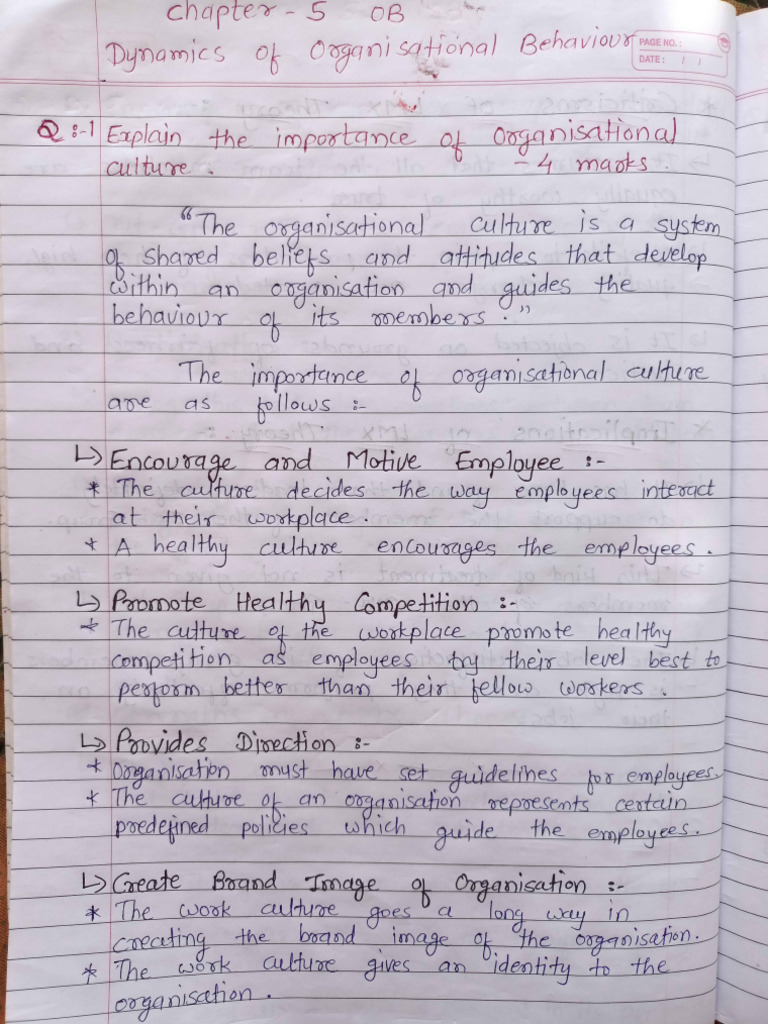 Chapter - 5 OB
Dynamics of Organisational Behaviour
PAGE NO. :
DATE : / /
Q :-1 Explain the importance of Organisational
culture. - 4 marks.
"The organisational culture is a system
of shared beliefs and attitudes that develop
within an organisation and guides the
behaviour of its members."
The importance of organisational culture
are as follows :-
↳ Encourage and Motive Employee :-
* The culture decides the way employees interact
at their workplace.
* A healthy culture encourages the employees.
↳ Promote Healthy Competition :-
* The culture of the workplace promote healthy
competition as employees try their level best to
perform better than their fellow workers.
↳ Provides Direction :-
* Organisation must have set guidelines for employees.
* The culture of an organisation represents certain
predefined policies which guide the employees.
↳ Create Brand Image of Organisation :-
* The work culture goes a long way in
creating the brand image of the organisation.
* The work culture gives an identity to the
organisation.